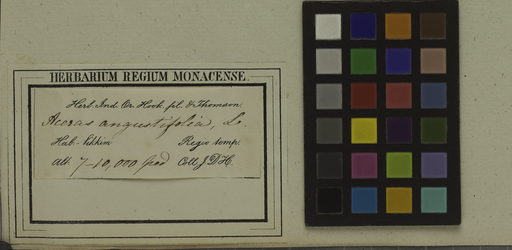 HERBARIUM REGIUM MONACENSE.
Herb. Ind. Or. Hook. fil. & Thomson.
Aceras angustifolia, L.
Hab. Sikkim Regio temp.
Alt. 7-10,000 ped Coll. J. D. H.